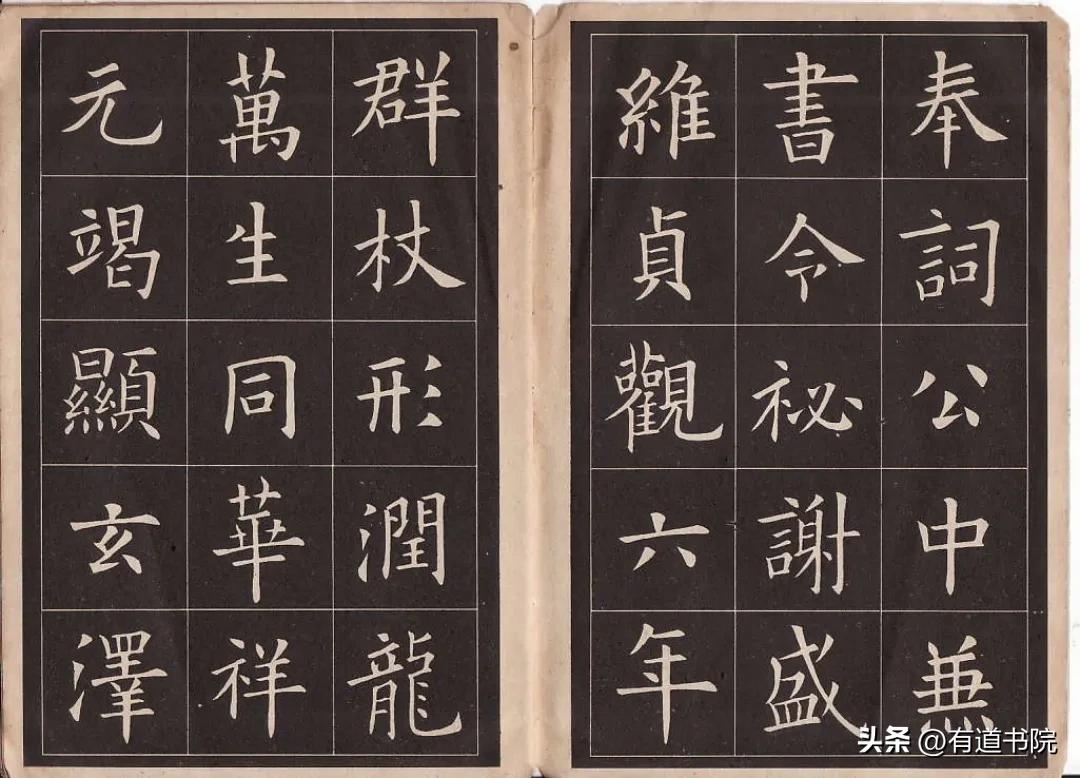 奉詞公中兼
書令祕謝盛
維貞觀六年
群杖形潤龍
萬生同華祥
元竭顯玄澤
头条 @有道书院